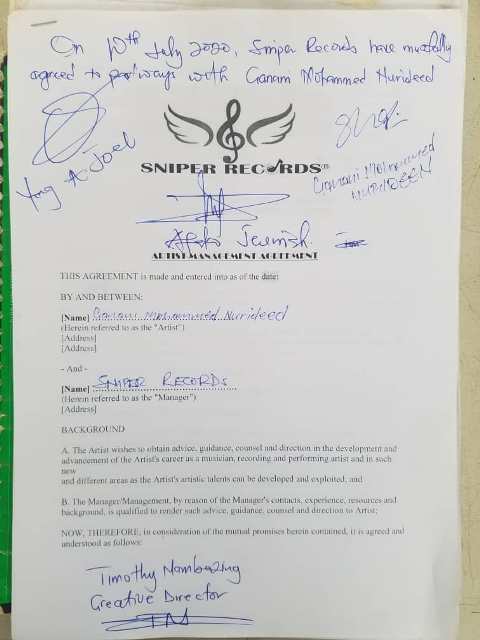 On 10th July 2020, Sniper Records have mutually
agreed to part ways with Ganani Mohammed Nurideed
Joel
SNIPER RECORDS
Ganani Mohammed
NURIDEEN
Jewish.
ARTIST MANAGEMENT AGREEMENT
THIS AGREEMENT is made and entered into as of the date:
BY AND BETWEEN:
[Name] Ganani Mohammed Nurideed
(Herein referred to as the "Artist")
[Address]
[Address]
- And -
[Name] SNIPER RECORDS
(Herein referred to as the "Manager")
[Address]
BACKGROUND
A. The Artist wishes to obtain advice, guidance, counsel and direction in the development and
advancement of the Artist's career as a musician, recording and performing artist and in such
new
and different areas as the Artist's artistic talents can be developed and exploited; and
B. The Manager/Management, by reason of the Manager's contacts, experience, resources and
background, is qualified to render such advice, guidance, counsel and direction to Artist;
NOW, THEREFORE, in consideration of the mutual promises herein contained, it is agreed and
understood as follows:
Timothy Nambazing
Creative Director